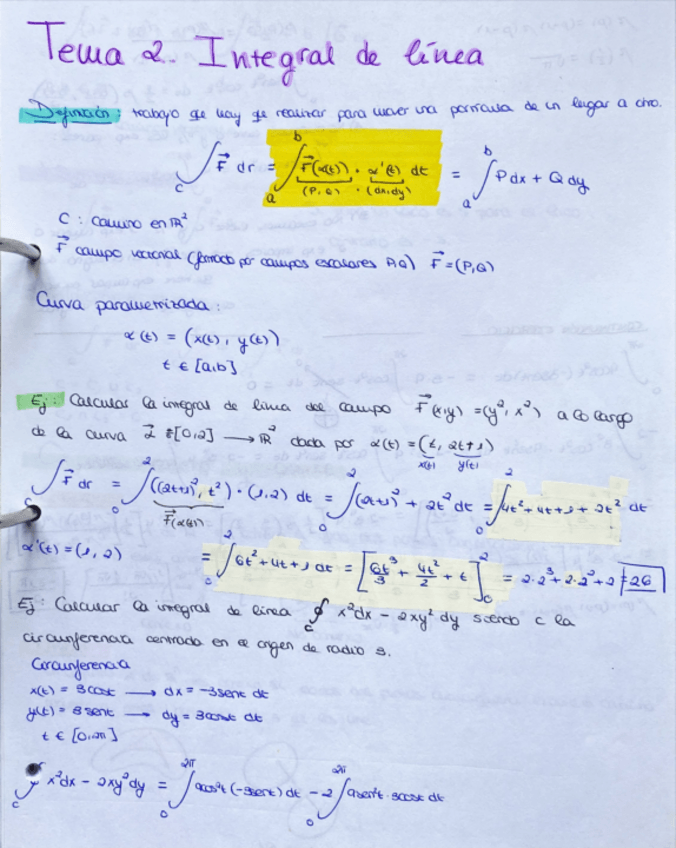 Tema 2. Integral de línea
Definición: trabajo que hay que realizar para mover una partícula de un lugar a otro.
∫_C F⃗ dr = ∫_a^b F⃗(α(t)) · α'(t) dt = ∫_a^b P dx + Q dy
(P, Q) · (dx, dy)
C : camino en ℝ²
F⃗ campo vectorial (formado por campos escalares P,Q) F⃗ = (P,Q)
Curva parametrizada :
α(t) = (x(t), y(t))
t ∈ [a,b]
Ej: Calcular la integral de línea del campo F⃗(x,y) = (y², x²) a lo largo
de la curva α⃗ : [0,2] → ℝ² dada por α(t) = (t, 2t+1)
x(t) y(t)
∫_C F⃗ dr = ∫_0^2 ((2t+1)², t²) · (1,2) dt = ∫_0^2 (2t+1)² + 2t² dt = ∫_0^2 4t² + 4t + 1 + 2t² dt
F⃗(α(t))
α'(t) = (1, 2) = ∫_0^2 6t² + 4t + 1 dt = [6t³/3 + 4t²/2 + t]_0^2 = 2·2³ + 2·2² + 2 = 26
Ej: Calcular la integral de línea ∮_C x²dx - 2xy² dy siendo C la
circunferencia centrada en el origen de radio 3.
Circunferencia
x(t) = 3cost → dx = -3sent dt
y(t) = 3sent → dy = 3cost dt
t ∈ [0,2π]
∮_C x²dx - 2xy²dy = ∫_0^2π 9cos²t (-3sent) dt - 2 ∫_0^2π 9sen²t · 3cost dt